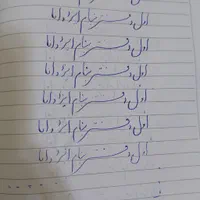 اول دفتر بنام ایزد دانا
اول دفتر بنام ایزد دانا
اول دفتر بنام ایزد دانا
اول دفتر بنام ایزد دانا
اول دفتر بنام ایزد دانا
اول دفتر بنام ایزد دانا